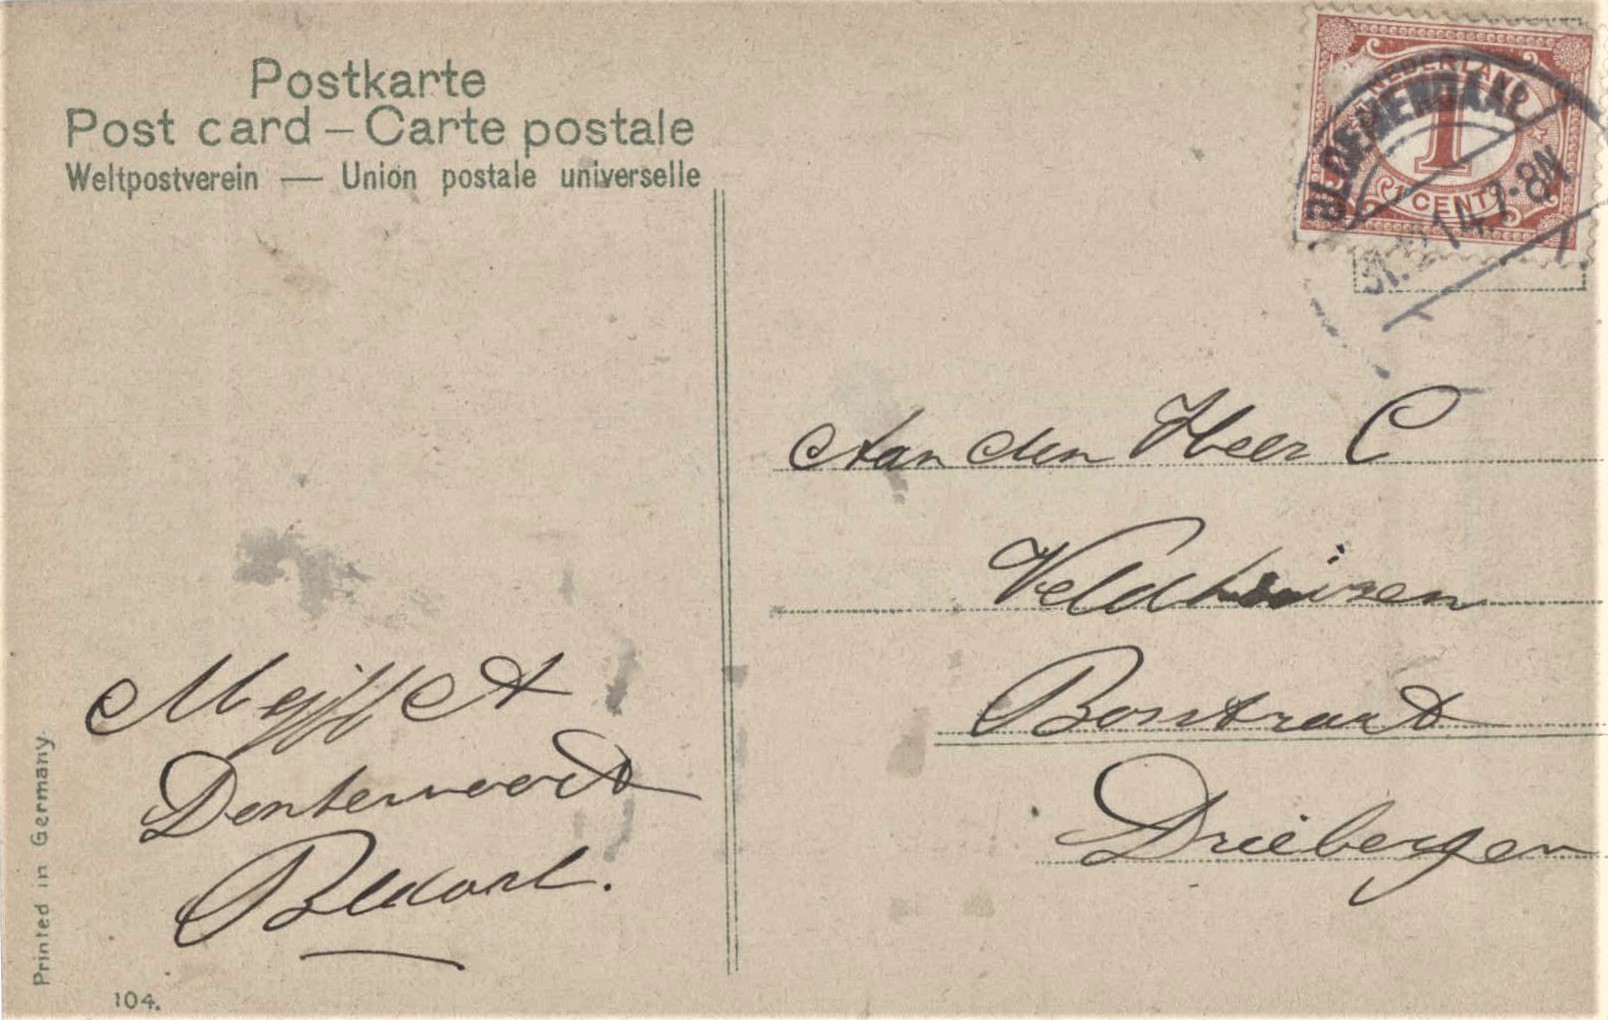 Postkarte
Post card – Carte postale
Weltpostverein — Union postale universelle
NEDERLAND
1
CENT
BLOEMENDAAL
14.7-8N
Aan den Heer C
Veldhuizen
Bosstraat
Driebergen
Mejff A
Bldaal.
Printed in Germany.
104.